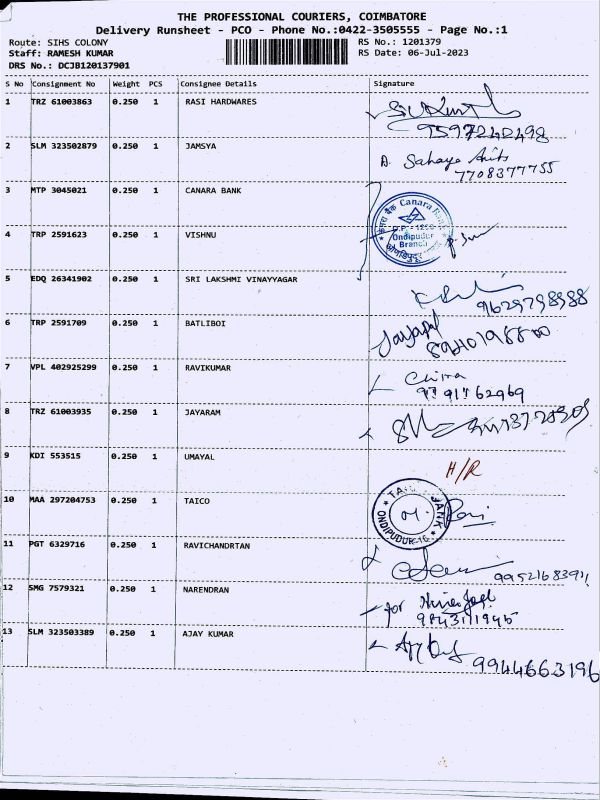 THE PROFESSIONAL COURIERS, COIMBATORE
Delivery Runsheet - PCO - Phone No.:0422-3505555 - Page No.:1
Route: SIHS COLONY RS No.: 1201379
Staff: RAMESH KUMAR RS Date: 06-Jul-2023
DRS No.: DCJB120137901
S No Consignment No Weight PCS Consignee Details Signature
1 TRZ 61003863 0.250 1 RASI HARDWARES
9597242498
2 SLM 323502879 0.250 1 JAMSYA A. Sahaya
7708377755
3 MTP 3045021 0.250 1 CANARA BANK
Canara
4 TRP 2591623 0.250 1 VISHNU
Ondipudur
Branch
5 EDQ 26341902 0.250 1 SRI LAKSHMI VINAYYAGAR
9629798988
6 TRP 2591709 0.250 1 BATLIBOI
7 VPL 402925299 0.250 1 RAVIKUMAR
8 TRZ 61003935 0.250 1 JAYARAM
9 KDI 553515 0.250 1 UMAYAL H/R
10 MAA 297204753 0.250 1 TAICO
11 PGT 6329716 0.250 1 RAVICHANDRTAN
12 SMG 7579321 0.250 1 NARENDRAN for
13 SLM 323503389 0.250 1 AJAY KUMAR
9944663196